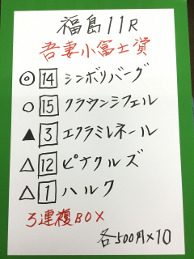 福島11R
吾妻小富士賞
◎ 14 シンボリバーグ
○ 15 クラウンシフェル
▲ 3 エクラミレネール
△ 12 ピナクルズ
△ 1 ハルク
3連複BOX
各500円×10